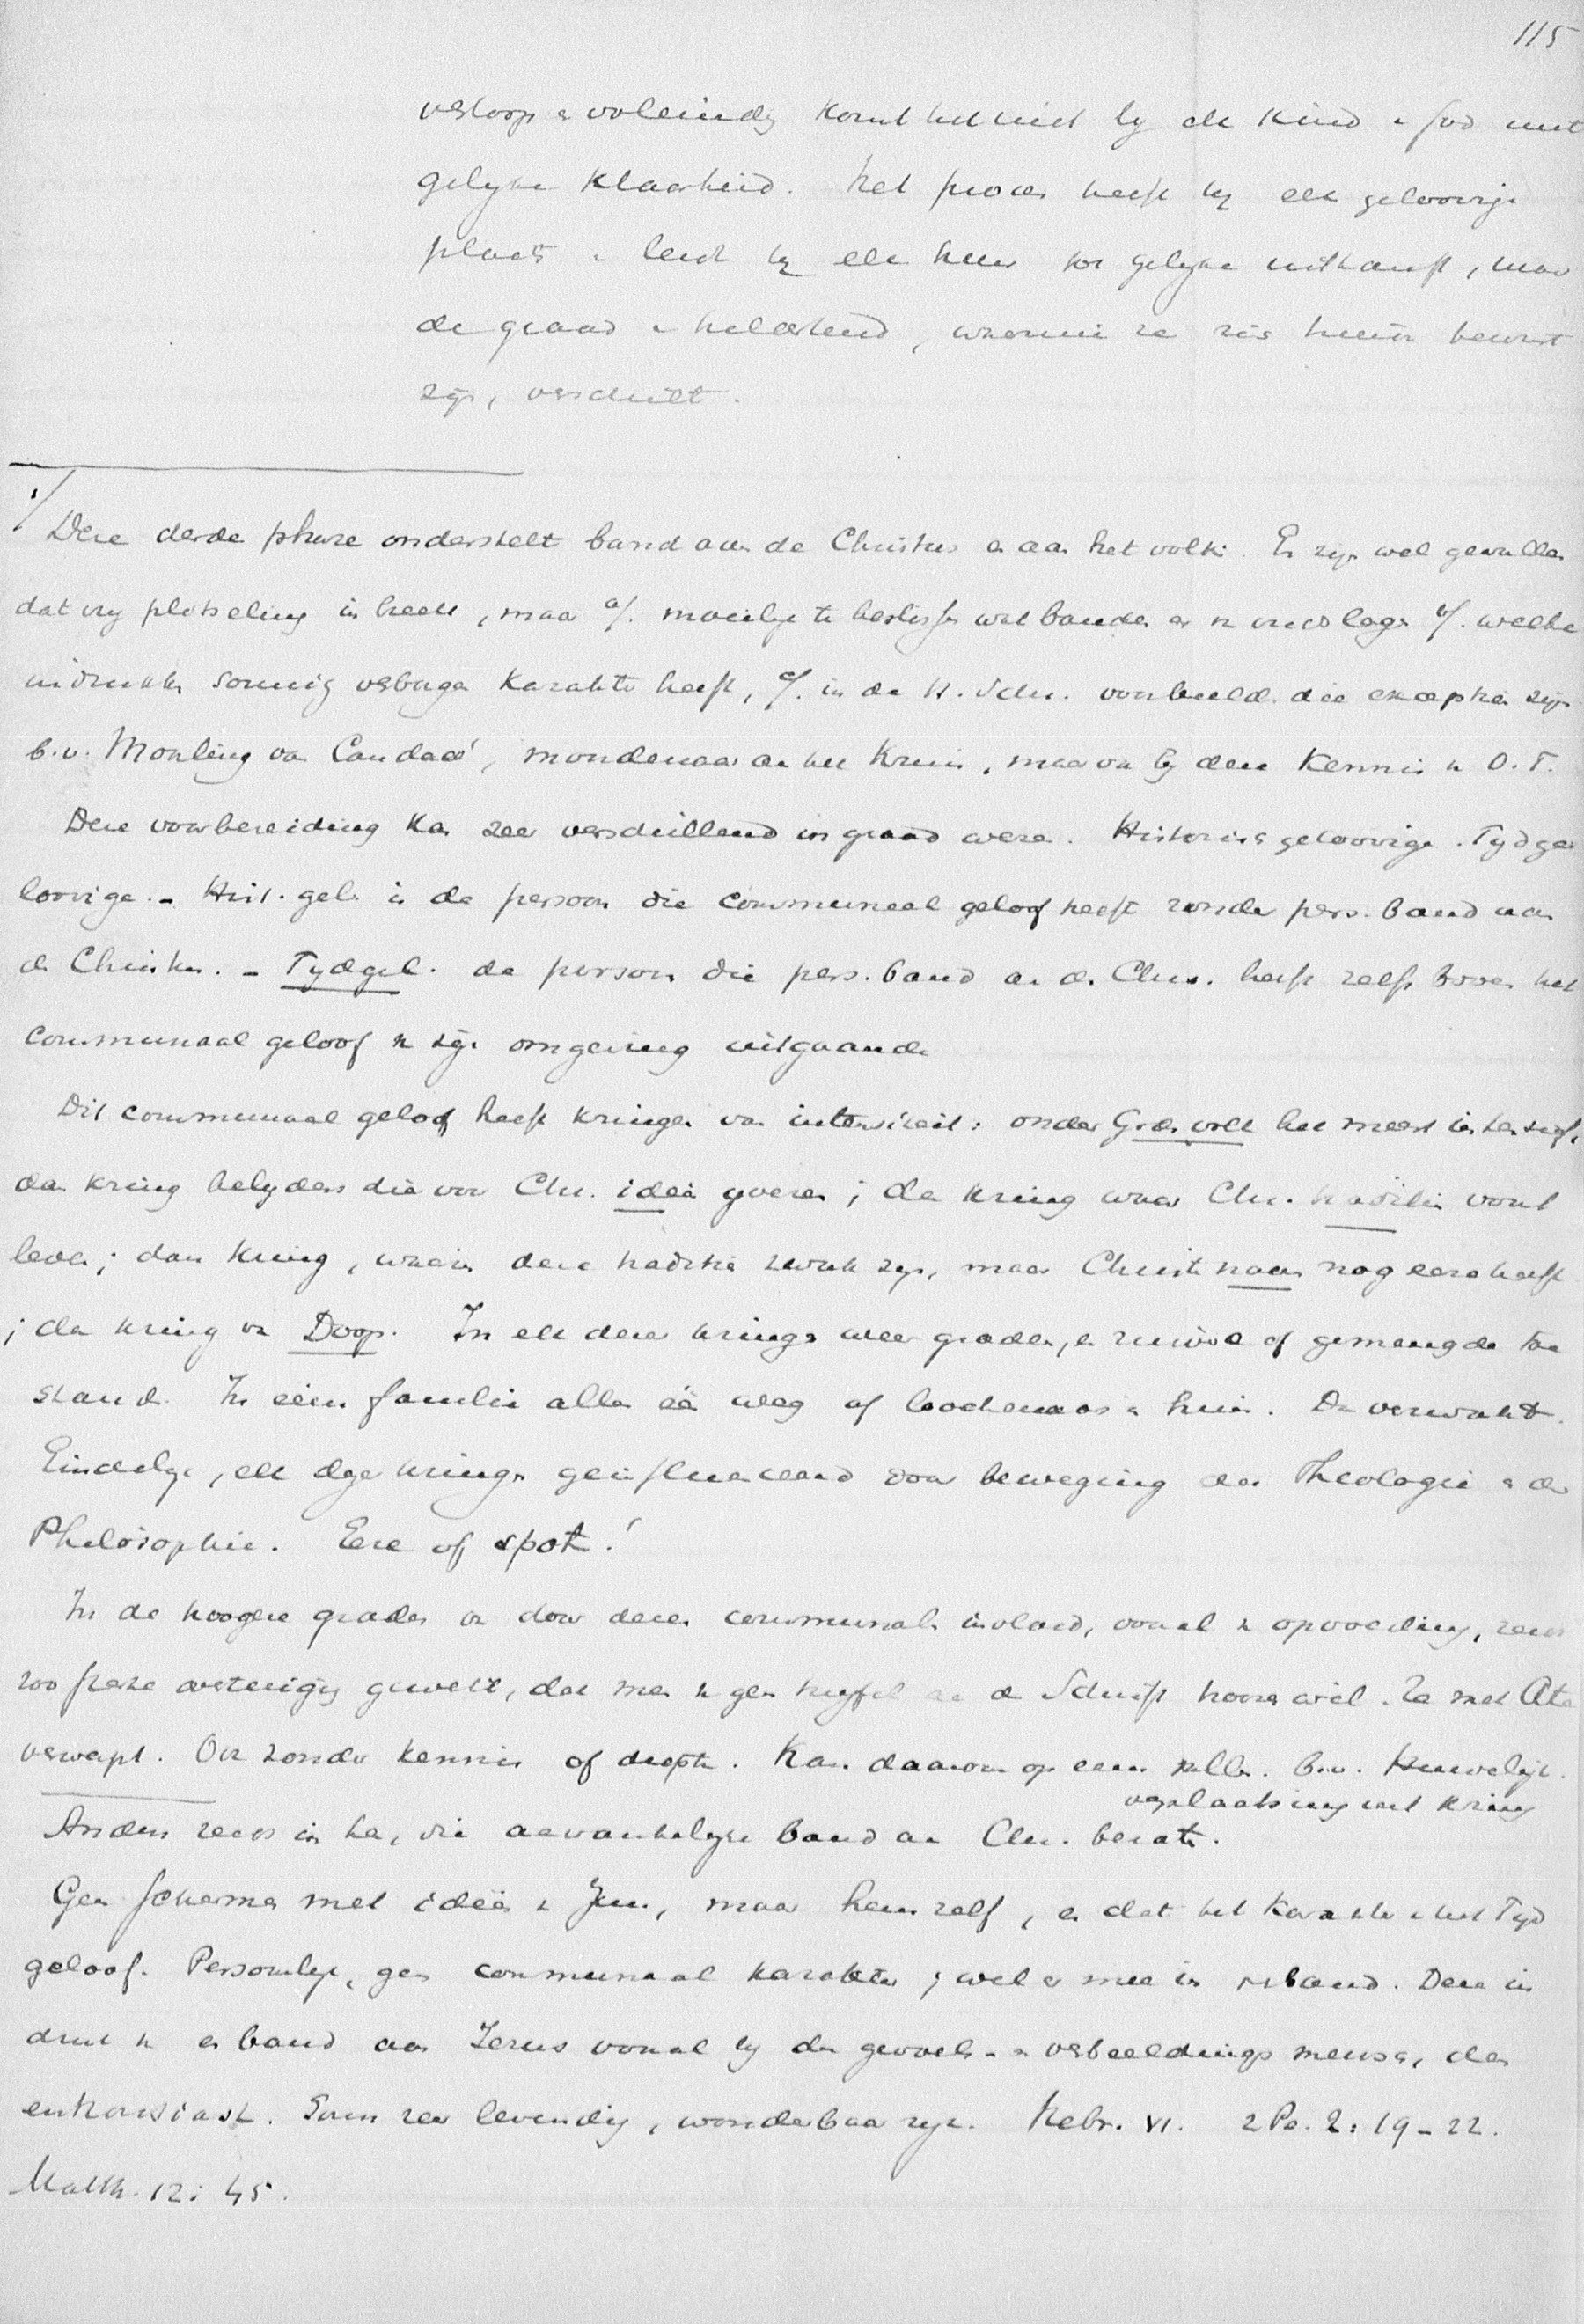 115
verloop & voleinding komt het niet by elk kind v God met
gelyke klaarheid. Het proces heeft by elk geloovige
plaats & leidt by elk hunner tot gelyke uitkomst, maar
de graad v helderheid, waarmee ze zich hierin bewust
zijn, verschilt.
1/
Deze derde phase onderstelt band aan de Christus en aan het volk. Er zijn wel gevallen
dat vry plotseling in treedt, maar a/. moeilyk te beslissen wat banden er in onces lagen b/. welke
indrukken sommig verborgen karakter heeft, c/. in de H. Schr. voorbeelden die exceptie zijn
b.v. Moorling van Candacé, moordenaar aan het Kruis, maar ook by deze kennis v O.T.
Deze voorbereiding kan zeer verschillend in graad wezen. Historisch geloovige. Tydge
loovige. - Hist. gel. is de persoon die communaal geloof heeft zonder pers. band aan
de Christus. - Tydgel. de persoon die pers. band aan de Chrs. heeft zelfs boven het
communaal geloof v zijn omgeving uitgaande
Dit communaal geloof heeft kringen van intensiteit: onder Gods volk het meest intensief,
dan kring belyders die voor Chr. ideeën yveren; de kring waar Chr. traditie voort
leven; dan kring, waarin deze traditie zwak zijn, maar Christennaam nog eere heeft
; de kring van Doop. In elk dezer kringen weer graden, en zuivere of gemengde toe
stand. In één familie allen één weg of loochenaars in huis. De verwant.
Eindelyk, elk dezer kringen geinfluenceerd door beweging der Theologie & der
Philosophie. Eere of spot!
In de hoogere graden is door dezen communalen invloed, vooral v opvoeding, reeds
zoo sterke overtuiging gewekt, dat men v geen twyfel aan de Schrift hooren wil. Ze met
verwerpt. Ook zonder kennis of diepte. Kan daarom op eens vallen. b.v. Huwelijk.
verplaatsing uit kring
Anders reeds in hen, die aanvankelyke band aan Chr. bezit.
Geen schema met ideeën v Jezus, maar hem zelf, en dat het karakter v het Tyd
geloof. Persoonlyk, geen communaal karakter; wel er mee in verband. Deze in
druk v en band aan Jezus vooral by de gevoels- & verbeeldings mensch, den
enthousiast. Soms zeer levendig, wonderbaar zyn. Hebr. VI. 2 Pe. 2: 19-22.
Matth. 12: 45.